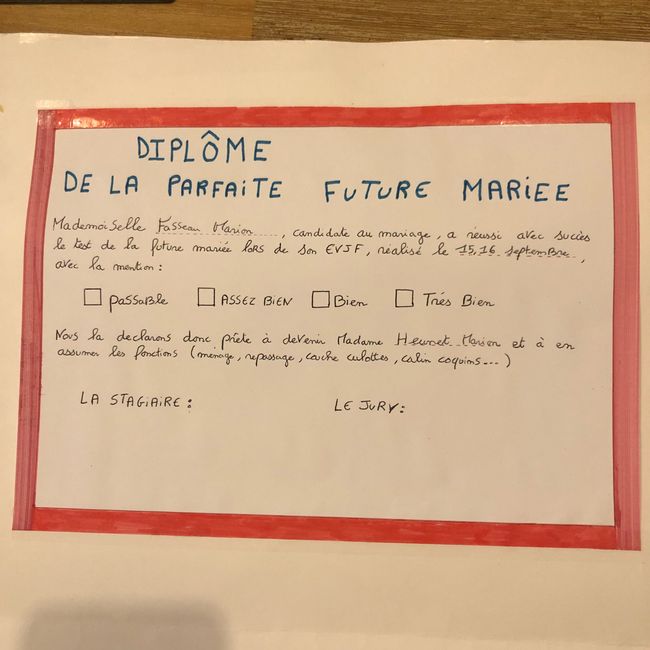 DIPLÔME
DE LA PARFAITE FUTURE MARIEE
Mademoiselle Fasseau Marion, candidate au mariage, a réussi avec succès
le test de la future mariée lors de son EVJF, réalisé le 15,16 septembre,
avec la mention :
passable ASSEZ BIEN Bien Trés Bien
Nous la declarons donc prête à devenir Madame Marion et à en
assumer les fonctions (ménage, repassage, cache culottes, calin coquins...)
LA STAGIAIRE : LE JURY :